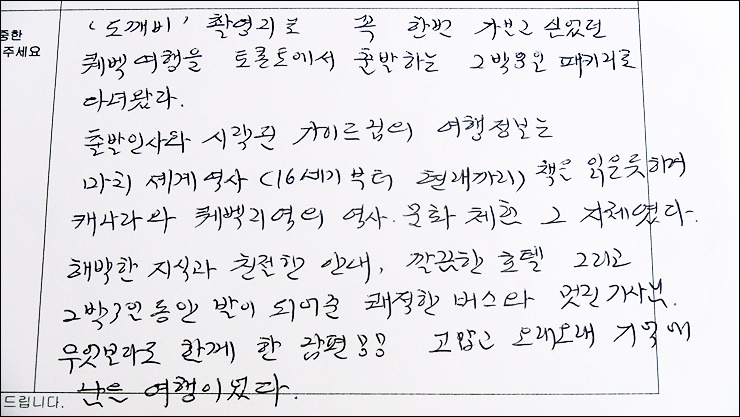 중한
주세요
'도깨비' 촬영지로 꼭 한번 가보고 싶었던
퀘벡여행을 토론토에서 출발하는 2박3일 패키지로
다녀왔다.
출발인사와 시작된 가이드님의 여행정보는
마치 세계역사 (16세기부터 현재까지) 책을 읽은듯하며
캐나다와 퀘벡지역의 역사.문화 체험 그 자체였다.
해박한 지식과 친절한 안내, 깔끔한 호텔 그리고
2박3일동안 발이 되어준 쾌적한 버스와 멋진기사님.
무엇보다도 함께 한 남편!! 고맙고 오래오래 기억에
남을 여행이었다.
드립니다.